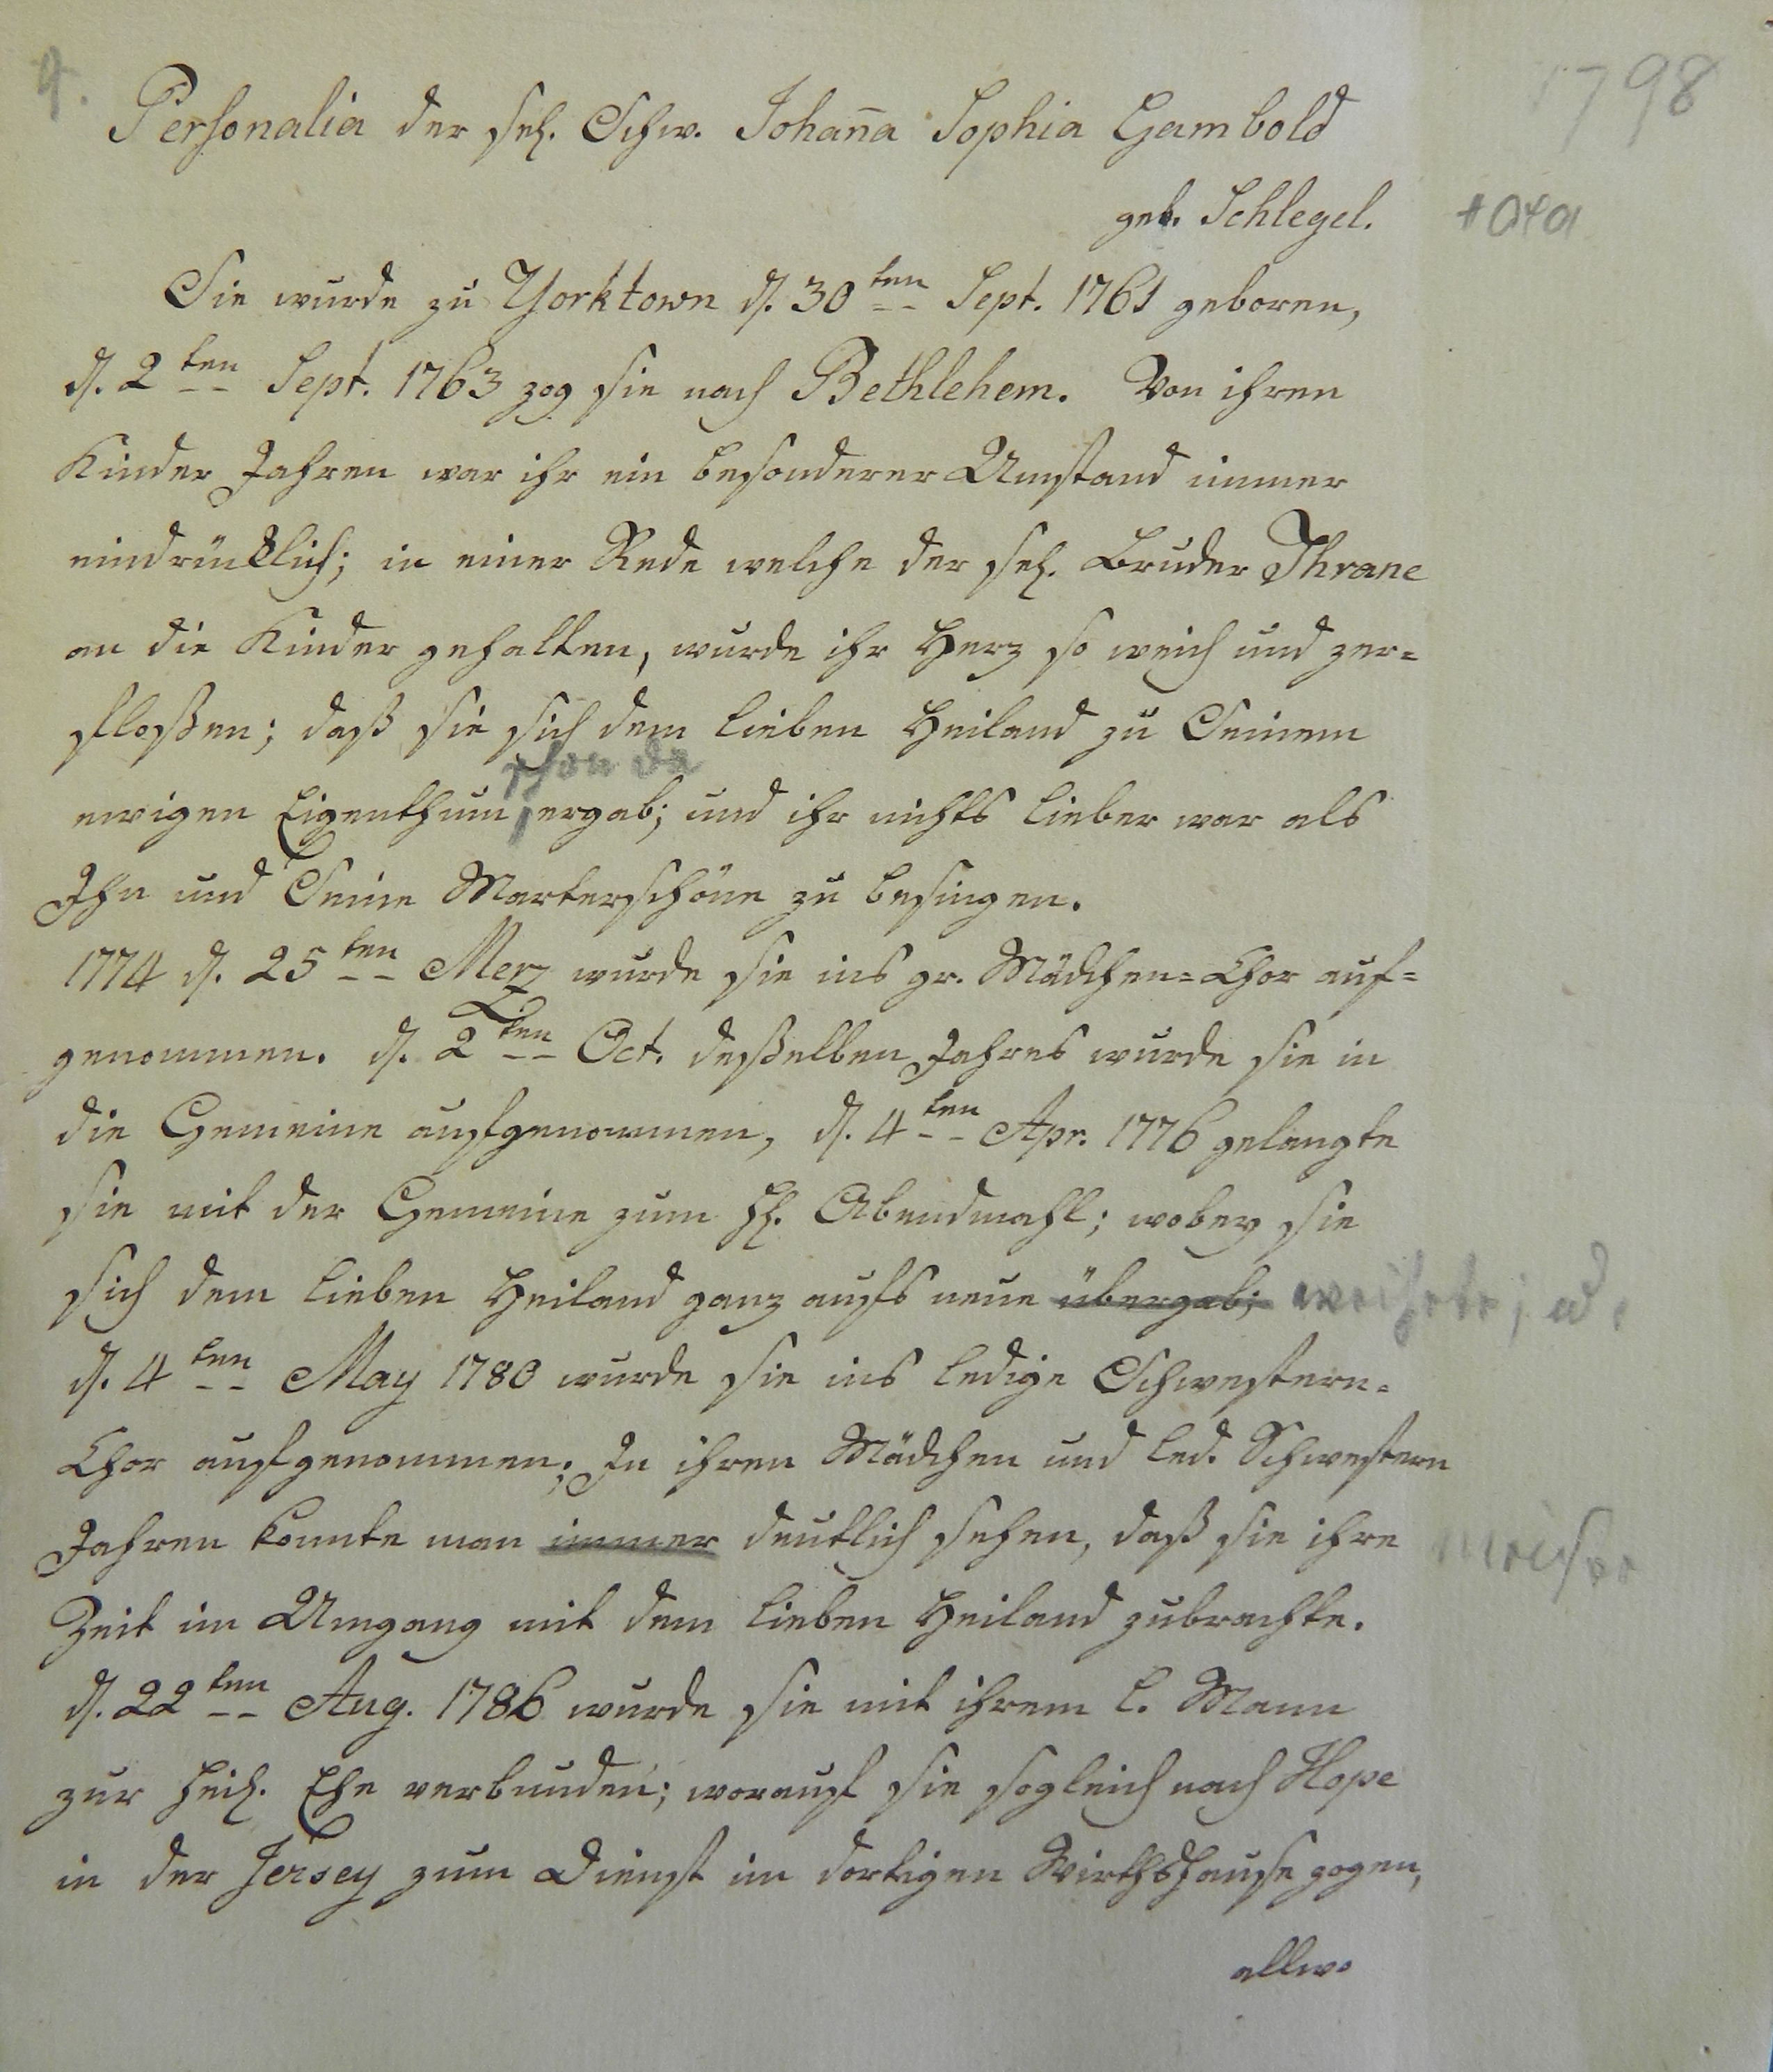 9. 1798
Personalia der sel. Schw. Johan̄a Sophia Gambold
geb. Schlegel.
Sie wurde zu Yorktown d. 30ten Sept. 1761 geboren,
d. 2ten Sept. 1763 zog sie nach Bethlehem. Von ihren
Kinder Jahren war ihr ein besonderer Umstand immer
eindrücklich; in einer Rede welche der sel. Bruder Thrane
an die Kinder gehalten, wurde ihr Herz so weich und zer=
floßen; daß sie sich dem lieben Heiland zu Seinem
schon da
ewigen Eigenthum ergab; und ihr nichts lieber war als
Ihn und Seine Marterschöne zu besingen.
1774 d. 25ten Merz wurde sie ins gr. Mädchen=Chor auf=
genommen. d. 2ten Oct. deßelben Jahres wurde sie in
die Gemeine aufgenommen, d. 4ten Apr. 1776 gelangte
sie mit der Gemeine zum hl. Abendmahl; wobey sie
sich dem lieben Heiland ganz aufs neue übergab; weihete; u.
d. 4ten May 1780 wurde sie ins ledige Schwestern=
Chor aufgenommen; In ihren Mädchen und led. Schwestern
Jahren konnte man immer deutlich sehen, daß sie ihre
Zeit im Umgang mit dem lieben Heiland zubrachte.
d. 22ten Aug. 1786 wurde sie mit ihrem l. Mann
zur heil. Ehe verbunden; worauf sie sogleich nach Hope
in der Jersey zum Dienst im dortigen Wirthshause zogen,
allwo